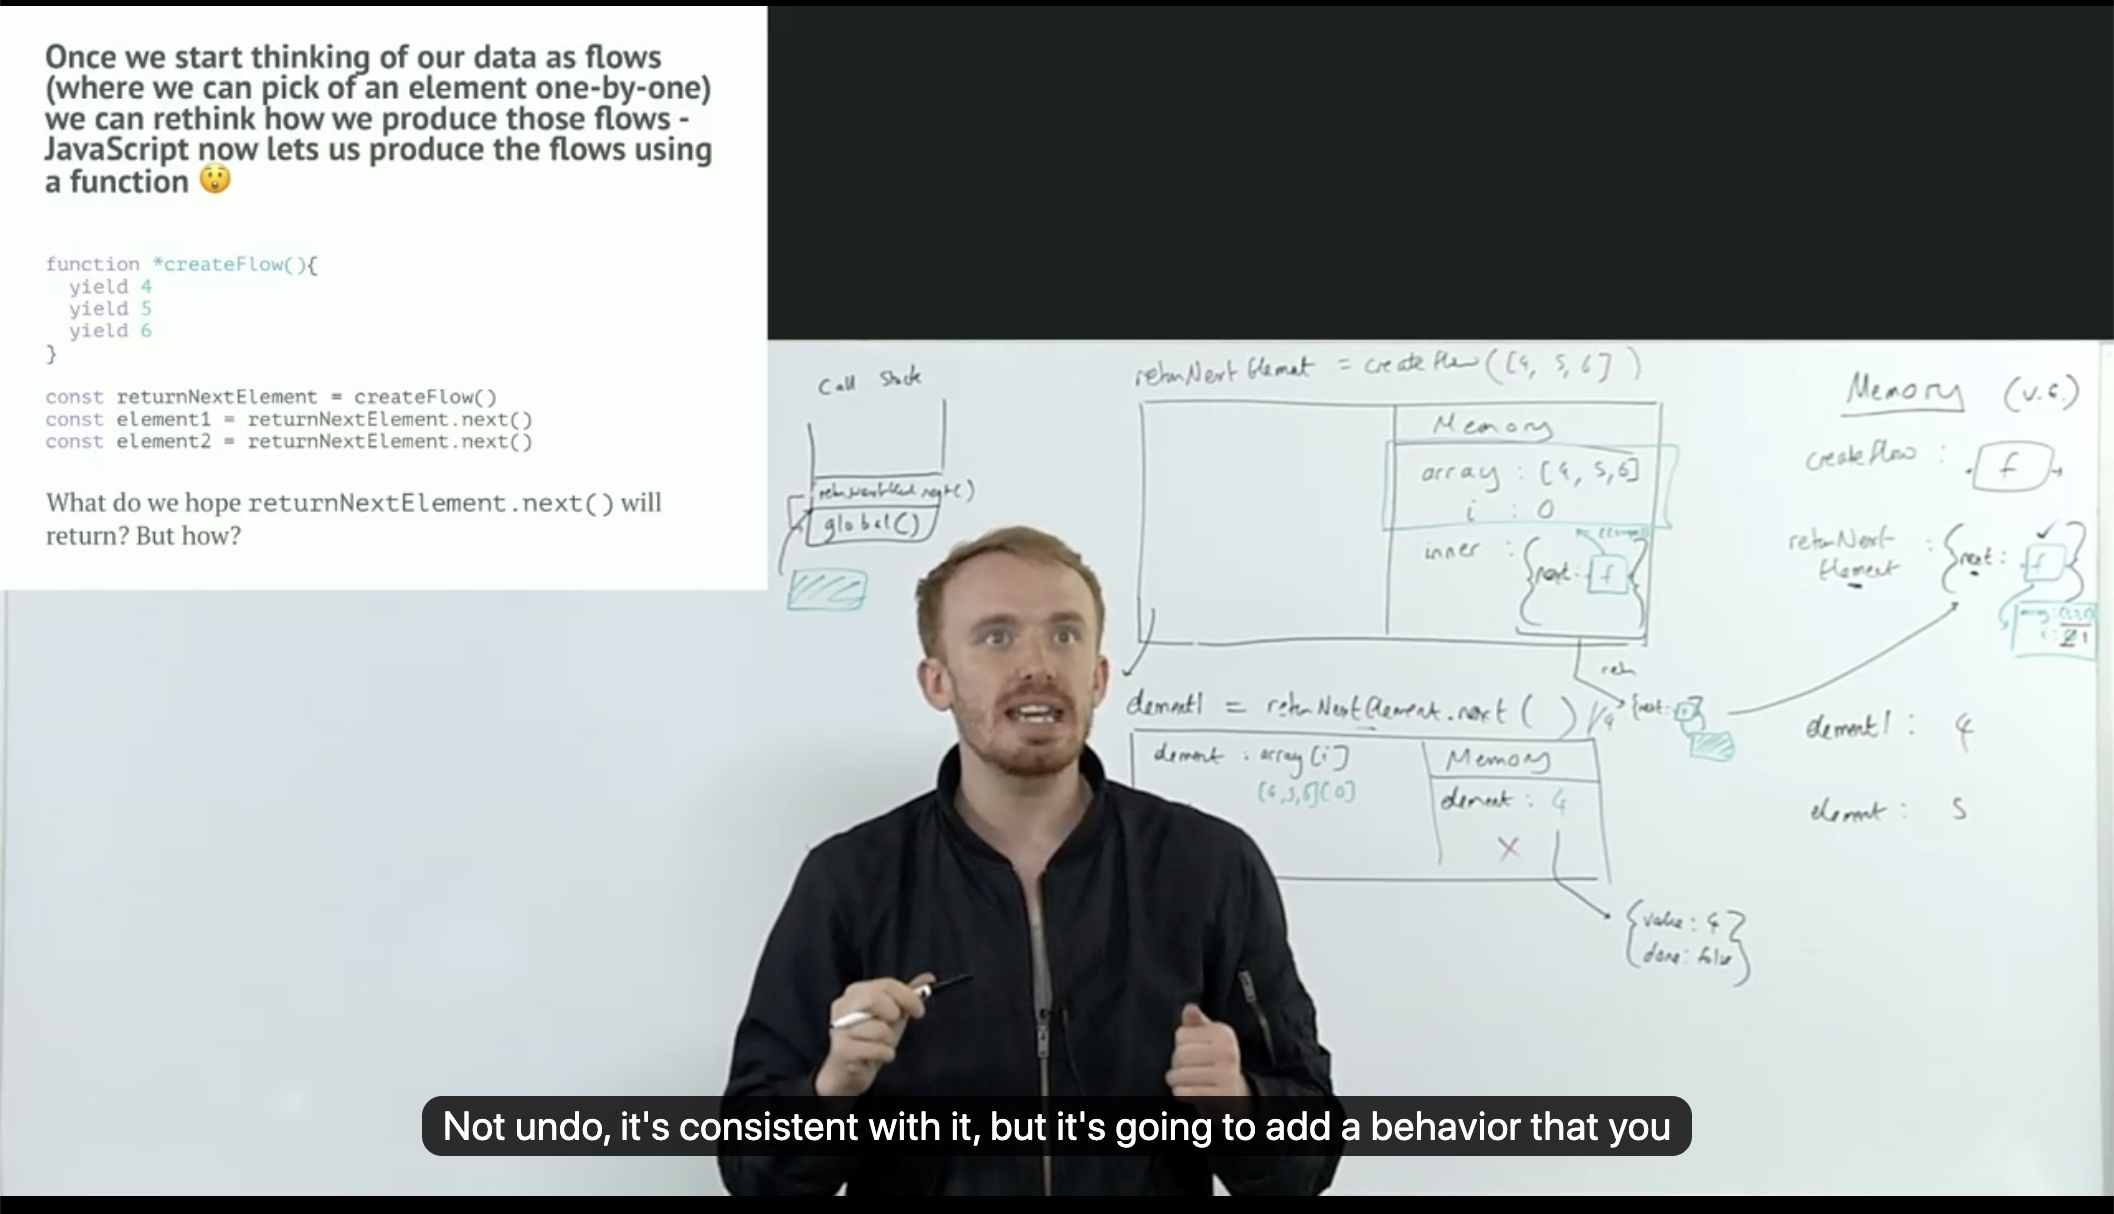 Once we start thinking of our data as flows
(where we can pick of an element one-by-one)
we can rethink how we produce those flows -
JavaScript now lets us produce the flows using
a function 😲
function *createFlow(){
yield 4
yield 5
yield 6
}
const returnNextElement = createFlow()
const element1 = returnNextElement.next()
const element2 = returnNextElement.next()
What do we hope returnNextElement.next() will
return? But how?
Call Stack
global()
returnNextElement = createFlow([4, 5, 6])
Memory
array : [4, 5, 6]
i : 0
inner : {next: f}
element1 = returnNextElement.next( )
{next:
element : array[i]
[4,5,6][0]
Memory
element : 4
X
{value : 4
done: false}
Memory (v.e.)
createFlow : f
returnNext
Element : {next: f}
element1 : 4
element : 5
Not undo, it's consistent with it, but it's going to add a behavior that you